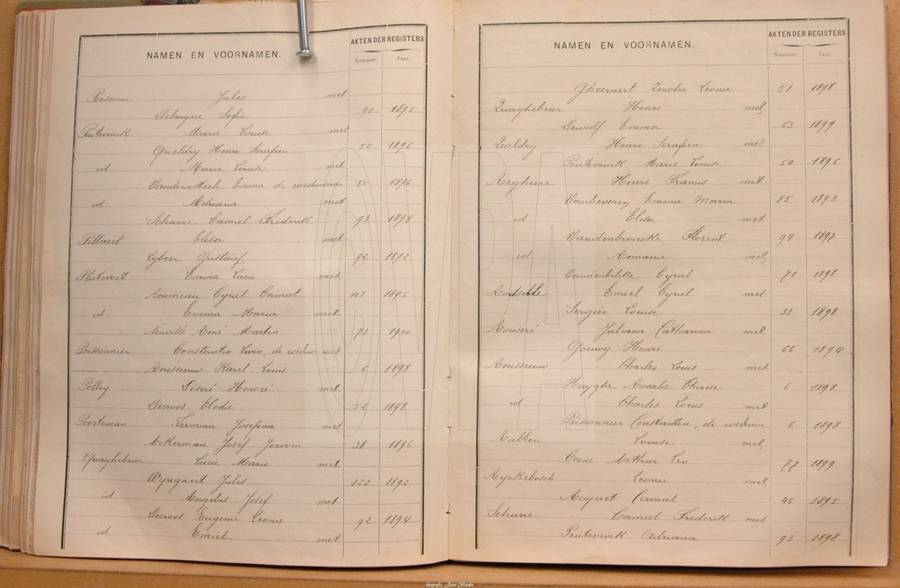 NAMEN EN VOORNAMEN. AKTEN DER REGISTERS
Nummer Jaar
Persoon Jules met
Sofie 90 1895
Penterinck Marie Louise met
Queldry Henri Serafien 50 1896
id Marie Louise met
Emma de weduwe 1896
id Adriana met
Scharre Camiel Frederik 93 1898
Pillaert Elisa met
Lybeer Gustaaf 92 1892
Emma Lucia met
Cyriel Camiel 113 1895
id Emma Maria met
Neuville René Martin 73 1900
Poissonnier Constantia de weduwe met
Rousseeuw Karel Louis 6 1898
Polley Désiré Honoré met
Decroos Elodie 52 1898
Poorteman Hermina Josefina met
Ackerman Josef Jeroom 38 1896
Quaghebeur Lucie Marie met
Wyngaert Jules 122 1892
id Angelus Josef met
Decroos Eugenie Leonie 92 1894
id Emiel met
NAMEN EN VOORNAMEN. AKTEN DER REGISTERS
Nummer Jaar
Gheeraert Zenobie Leonie 51 1898
Quaghebeur Henri met
Dewulf Emma 63 1899
Queldry Henri Serafien met
Penterinck Marie Louise 50 1896
Reghem Henri Francis met
Vanbeveren Emma Maria 85 1893
id Elisa met
Vandenbroucke Florent 94 1897
id Romanie met
Vandenbilcke Cyriel 71 1898
Emiel Cyriel met
Sergier Louise 33 1898
Rouseré Juliana Catharina met
Gouwy Henri 66 1894
Rousseeuw Charles Louis met
Huyghe Rosalie Therese 6 1898
id Charles Louis met
Poissonnier Constantia, de weduwe 6 1898
Rubben Louise met
Coene Arthur Leo 77 1899
Ryckebosch Leonie met
Acquet Camiel 45 1895
Scharre Camiel Frederik met
Penterinck Adriana 93 1898